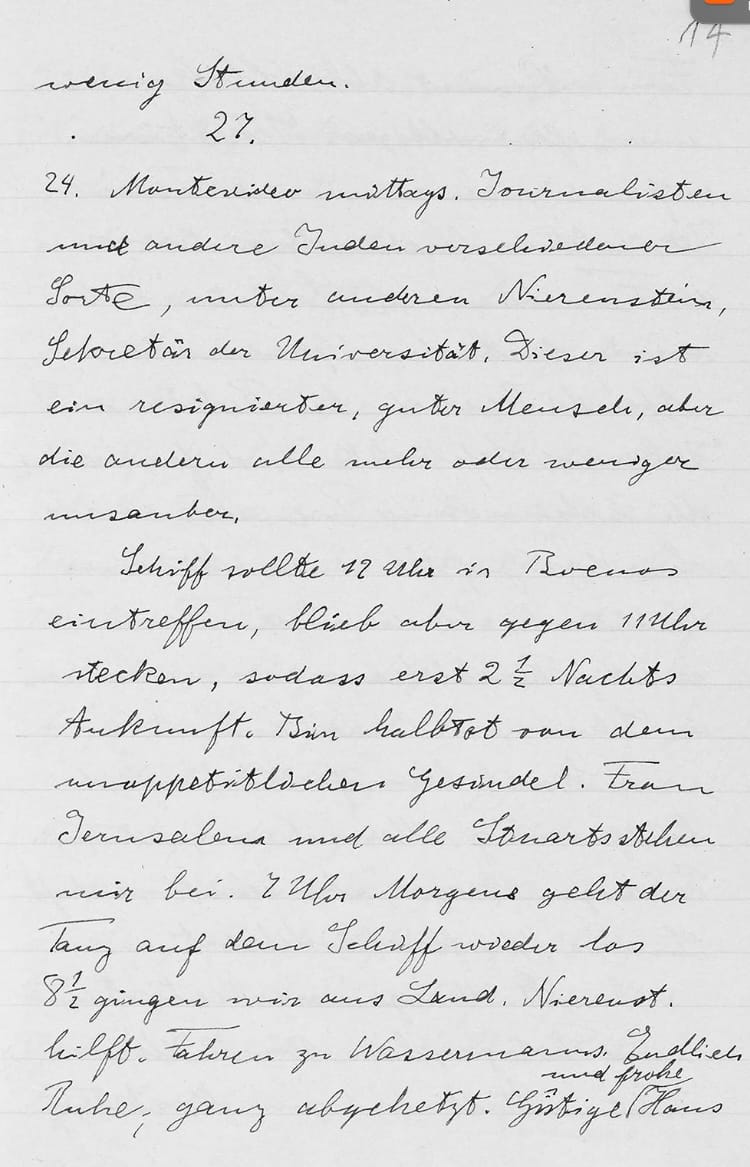 14
wenig Stunden.
27.
24. Montevideo mittags. Journalisten
und andere Juden verschiedener
Sorte, unter anderen Nierenstein,
Sekretär der Universität. Dieser ist
ein resignierter, guter Mensch, aber
die andern alle mehr oder weniger
unsauber.
Schiff sollte 12 Uhr in Buenos
eintreffen, blieb aber gegen 11 Uhr
stecken, sodass erst 2 1/2 Nachts
Ankunft. Bin halbtot von dem
unappetitlichen Gesindel. Frau
Jerusalem und alle Stuarts stehen
mir bei. 7 Uhr Morgens geht der
Tanz auf dem Schiff wieder los
8 1/2 gingen wir ans Land. Nierenst.
hilft. Fahren zu Wassermanns. Endlich
und frohe
Ruhe, ganz abgehetzt. Gütige Haus